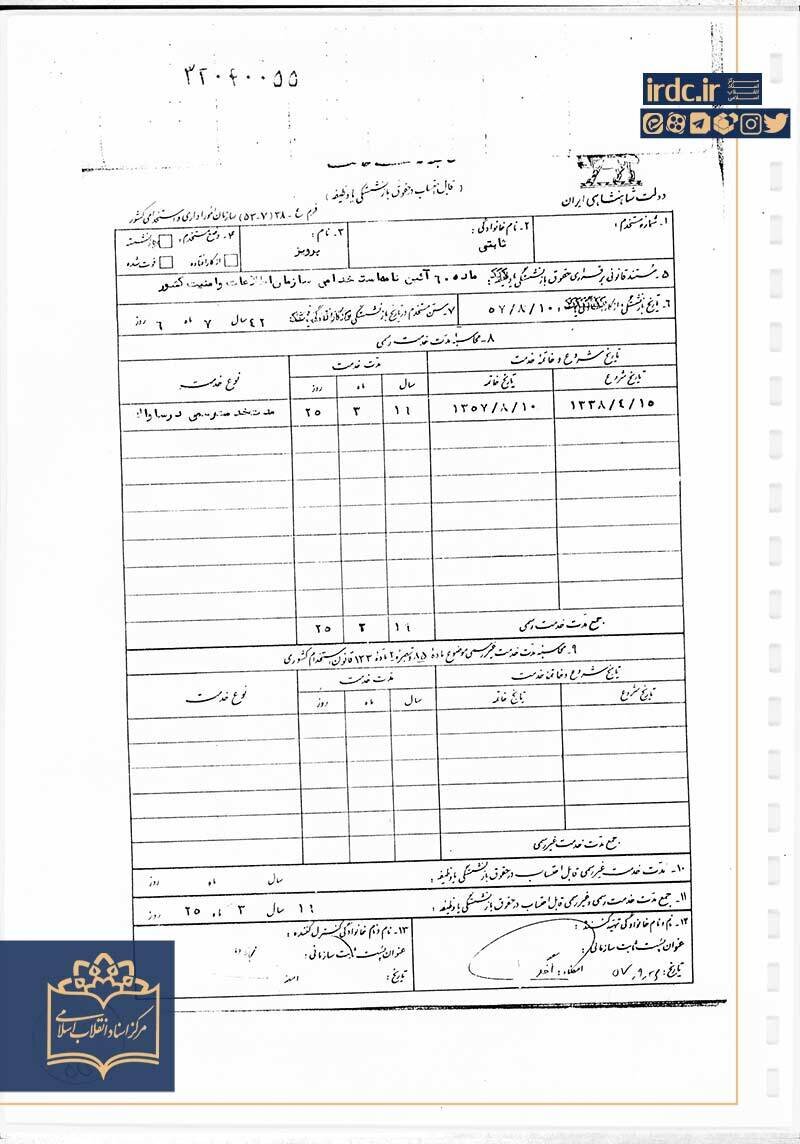 ۳۲۰۴۰۰۵۵
irdc.ir
مرکز اسناد انقلاب اسلامی
دولت شاهنشاهی ایران
(قابل احتساب در حقوق بازنشستگی یا وظیفه)
فرم ع - ۲۸ (۷-۵۳) سازمان امور اداری و استخدامی کشور
۱- شماره مستخدم:
۲- نام خانوادگی: ثابتی
۳- نام: پرویز
۴- وضع مستخدم: بازنشسته
ازکارافتاده فوت شده
۵- مستند قانونی برقراری حقوق بازنشستگی یا وظیفه: ماده ۶۰ آئین نامه استخدامی سازمان اطلاعات و امنیت کشور
۶- تاریخ بازنشستگی ۵۷/۸/۱۰
۷- سن مستخدم در تاریخ بازنشستگی ۴۲ سال ۷ ماه ۶ روز
۸- محاسبه مدت خدمت رسمی
تاریخ شروع و خاتمه خدمت مدت خدمت نوع خدمت
تاریخ شروع تاریخ خاتمه سال ماه روز
۱۳۳۸/۴/۱۵ ۱۳۵۷/۸/۱۰ ۱۹ ۳ ۲۵ مدت خدمت رسمی در ساواک
جمع مدت خدمت رسمی ۱۹ ۳ ۲۵
۹- محاسبه مدت خدمت غیررسمی موضوع ماده ۸۵ و تبصره ۲ ماده ۱۳۳ قانون استخدام کشوری
تاریخ شروع و خاتمه خدمت مدت خدمت نوع خدمت
تاریخ شروع تاریخ خاتمه سال ماه روز
جمع مدت خدمت غیررسمی
۱۰- مدت خدمت غیررسمی قابل احتساب در حقوق بازنشستگی یا وظیفه: سال ماه روز
۱۱- جمع مدت خدمت رسمی و غیررسمی قابل احتساب در حقوق بازنشستگی یا وظیفه: ۱۹ سال ۳ ماه ۲۵ روز
۱۲- نام و نام خانوادگی تهیه کننده:
عنوان پست ثابت سازمانی:
تاریخ: امضاء:
۱۳- نام و نام خانوادگی کنترل کننده:
عنوان پست ثابت سازمانی:
تاریخ: امضاء
مرکز اسناد انقلاب اسلامی